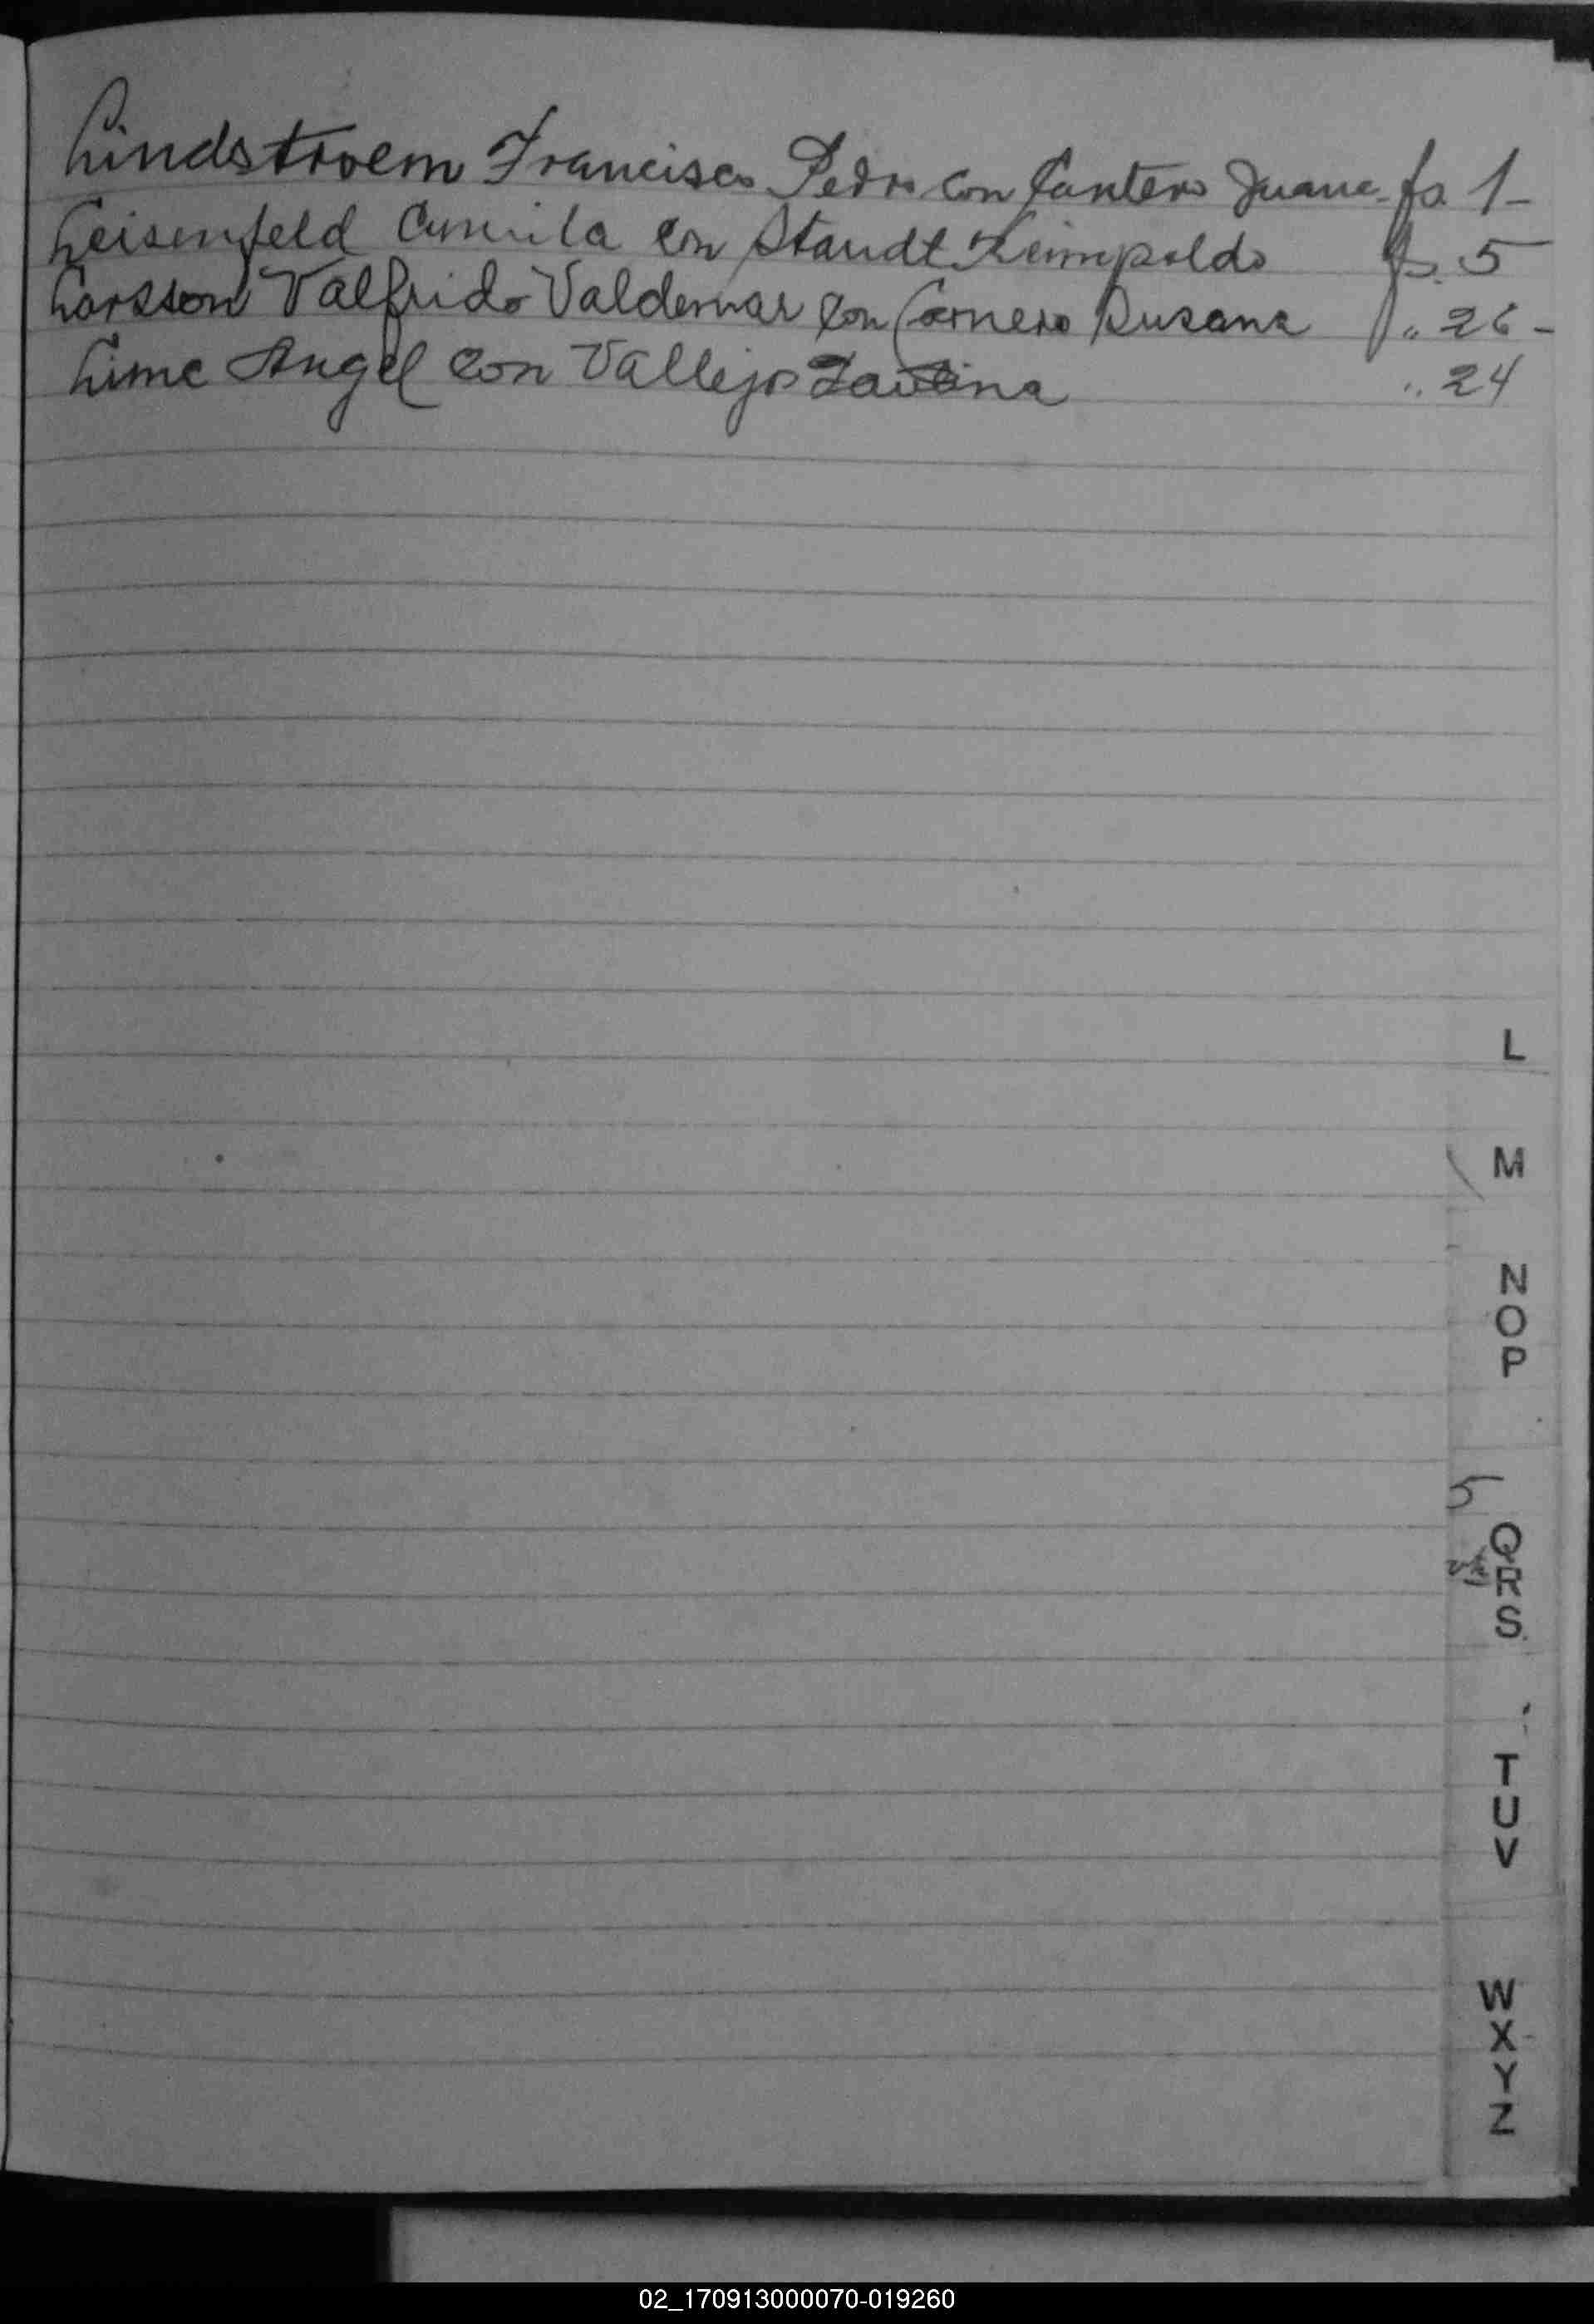 Lindstroem Francisco Pedro con Cantero Juana fs. 1-
Leisenfeld Camila con Staudt Leimpoldo fs. 5
Larsson Valfrido Valdemar con Carnero Susana " 26-
Lime Angel con Vallejos " 24
L
M
N
O
P
5
Q
R
S
T
U
V
W
X
Y
Z
02_170913000070-019260